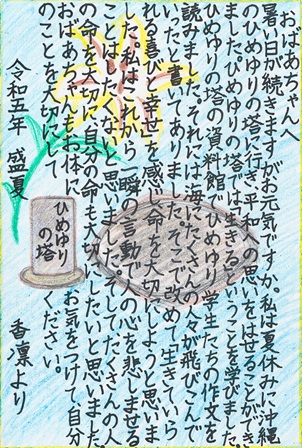 おばあちゃんへ
暑い日が続きますがお元気ですか。私は夏休みに沖縄
のひめゆりの塔に行き、平和への思いをはせることができ
ました。ひめゆりの塔では、生きるということを学びました。
ひめゆりの塔の資料館でひめゆり学生たちの作文を
読みました。それには海にたくさんの人々が飛びこんで
いったと書いてありました。そこで改めて「生きていら
れる喜びと幸せを感じ、命を大切にしようと思いま
した。私はこれから一瞬の言動で人の心を悲しませる
ことはしたくないと思いました。そしてたくさんの人
の命を大切に、自分の命も大切にしたいと思いました。
おばあちゃんもお体にお気をつけて、自分
のことを大切にしてください。
令和五年 盛夏
香凜より
ひめゆり
の塔